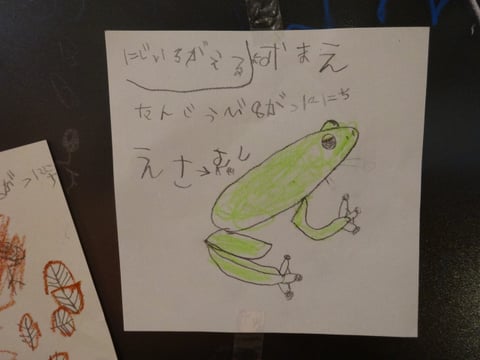 にじいろがえる←なまえ
たんじょうび8がつ12にち
えさ→むし